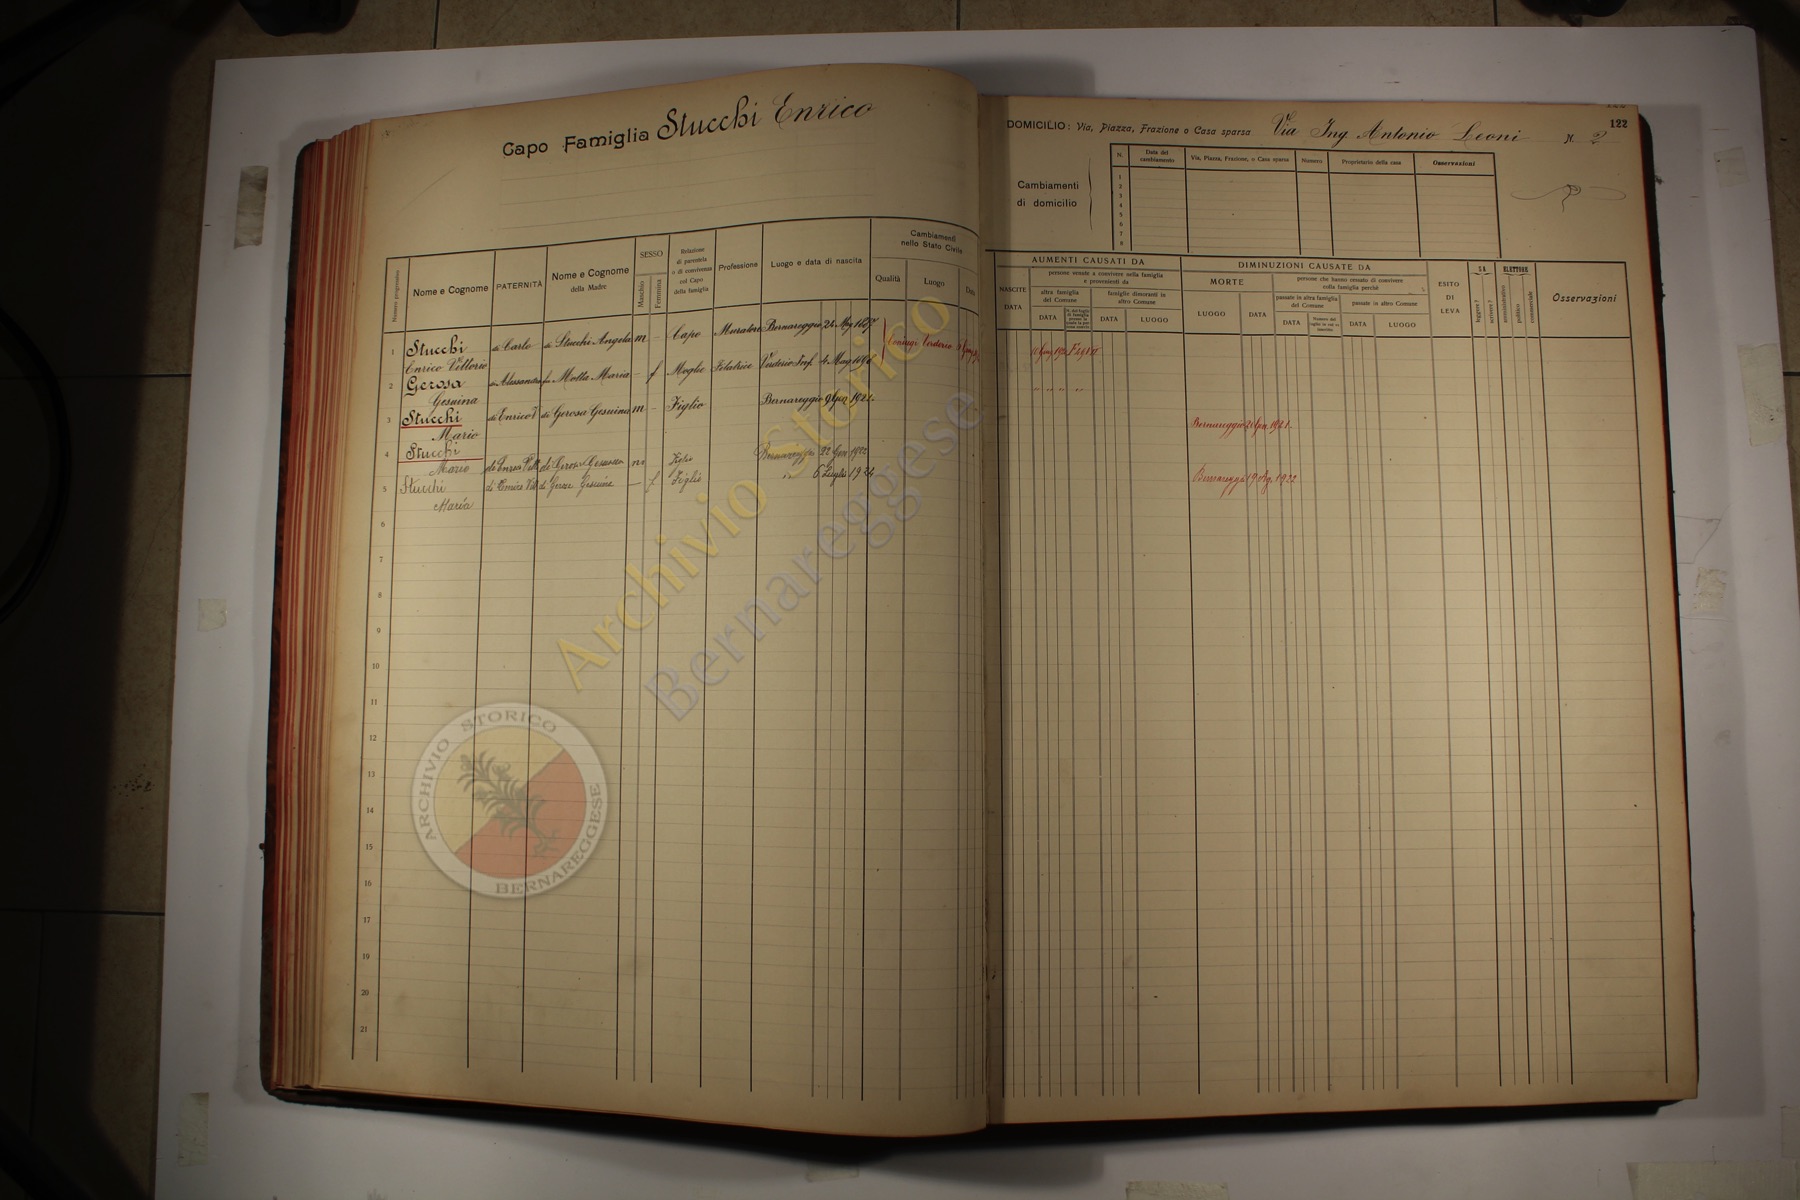 Capo Famiglia Stucchi Enrico
Numero progressivo
Nome e Cognome
PATERNITÀ
Nome e Cognome
della Madre
SESSO
Maschio
Femmina
Relazione
di parentela
o di convivenza
col Capo
della famiglia
Professione
Luogo e data di nascita
Cambiamenti
nello Stato Civile
Qualità
Luogo
Data
1 Stucchi di Carlo di Stucchi Angela m - Capo Muratore Bernareggio 24 Mag
Enrico Vittorio
Coniugi Verderio
2 Gerosa Motta Maria - f Moglie Filatrice Verderio Inf. 4 Mag
Gesuina
3 Stucchi di Enrico V. di Gerosa Gesuina m - Figlio Bernareggio 9 Gen 1921.
Mario
4 Stucchi
Mario di Enrico Vitt. di Gerosa Gesuina m Figlio Bernareggio 22 Gen 1922
5 Stucchi di Enrico Vitt. di Gerosa Gesuina — f Figlia " 6 Luglio 1924
Maria
6
7
8
9
10
11
12
13
14
15
16
17
18
19
20
21
122
DOMICILIO: Via, Piazza, Frazione o Casa sparsa Via Ing. Antonio Leoni N. 2
Cambiamenti
di domicilio
N.
Data del
cambiamento
Via, Piazza, Frazione, o Casa sparsa
Numero
Proprietario della casa
Osservazioni
1
2
3
4
5
6
7
8
AUMENTI CAUSATI DA
NASCITE
DATA
persone venute a convivere nella famiglia
e provenienti da
altra famiglia
del Comune
DATA
famiglie dimoranti in
altro Comune
DATA
LUOGO
DIMINUZIONI CAUSATE DA
MORTE
LUOGO
DATA
persone che hanno cessato di convivere
colla famiglia perchè
passate in altra famiglia
del Comune
DATA
passate in altro Comune
DATA
LUOGO
ESITO
DI
LEVA
SA
leggere?
scrivere?
ELETTORE
amministrativo
politico
commerciale
Osservazioni
" " " "
Bernareggio 21 Gen. 1921.
Bernareggio 19 Ag. 1922
Archivio Storico
Bernareggese
ARCHIVIO STORICO
BERNAREGGESE